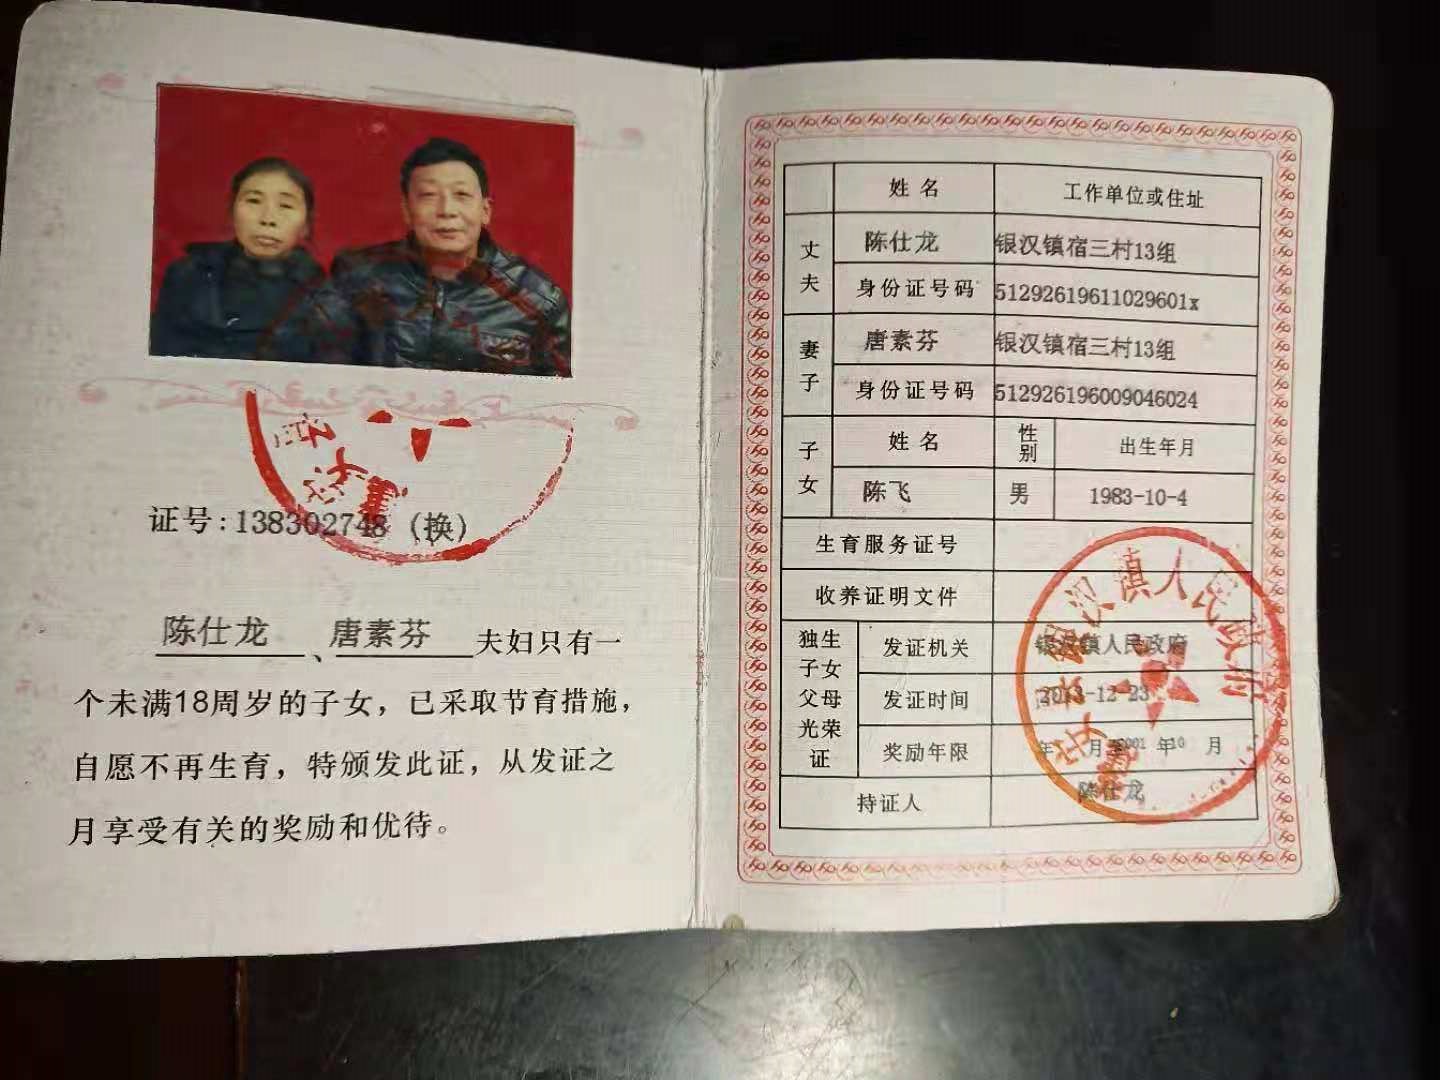 证号:138302748（换）
陈仕龙、唐素芬 夫妇只有一
个未满18周岁的子女，已采取节育措施，
自愿不再生育，特颁发此证，从发证之
月享受有关的奖励和优待。
姓名 工作单位或住址
丈夫 陈仕龙 银汉镇宿三村13组
身份证号码 51292619611029601x
妻子 唐素芬 银汉镇宿三村13组
身份证号码 512926196009046024
子女 姓名 性别 出生年月
陈飞 男 1983-10-4
生育服务证号
收养证明文件
独生子女父母光荣证 发证机关 银汉镇人民政府
发证时间 2013-12-23
奖励年限 年 月至2001年10月
持证人 陈仕龙
银汉镇人民政府